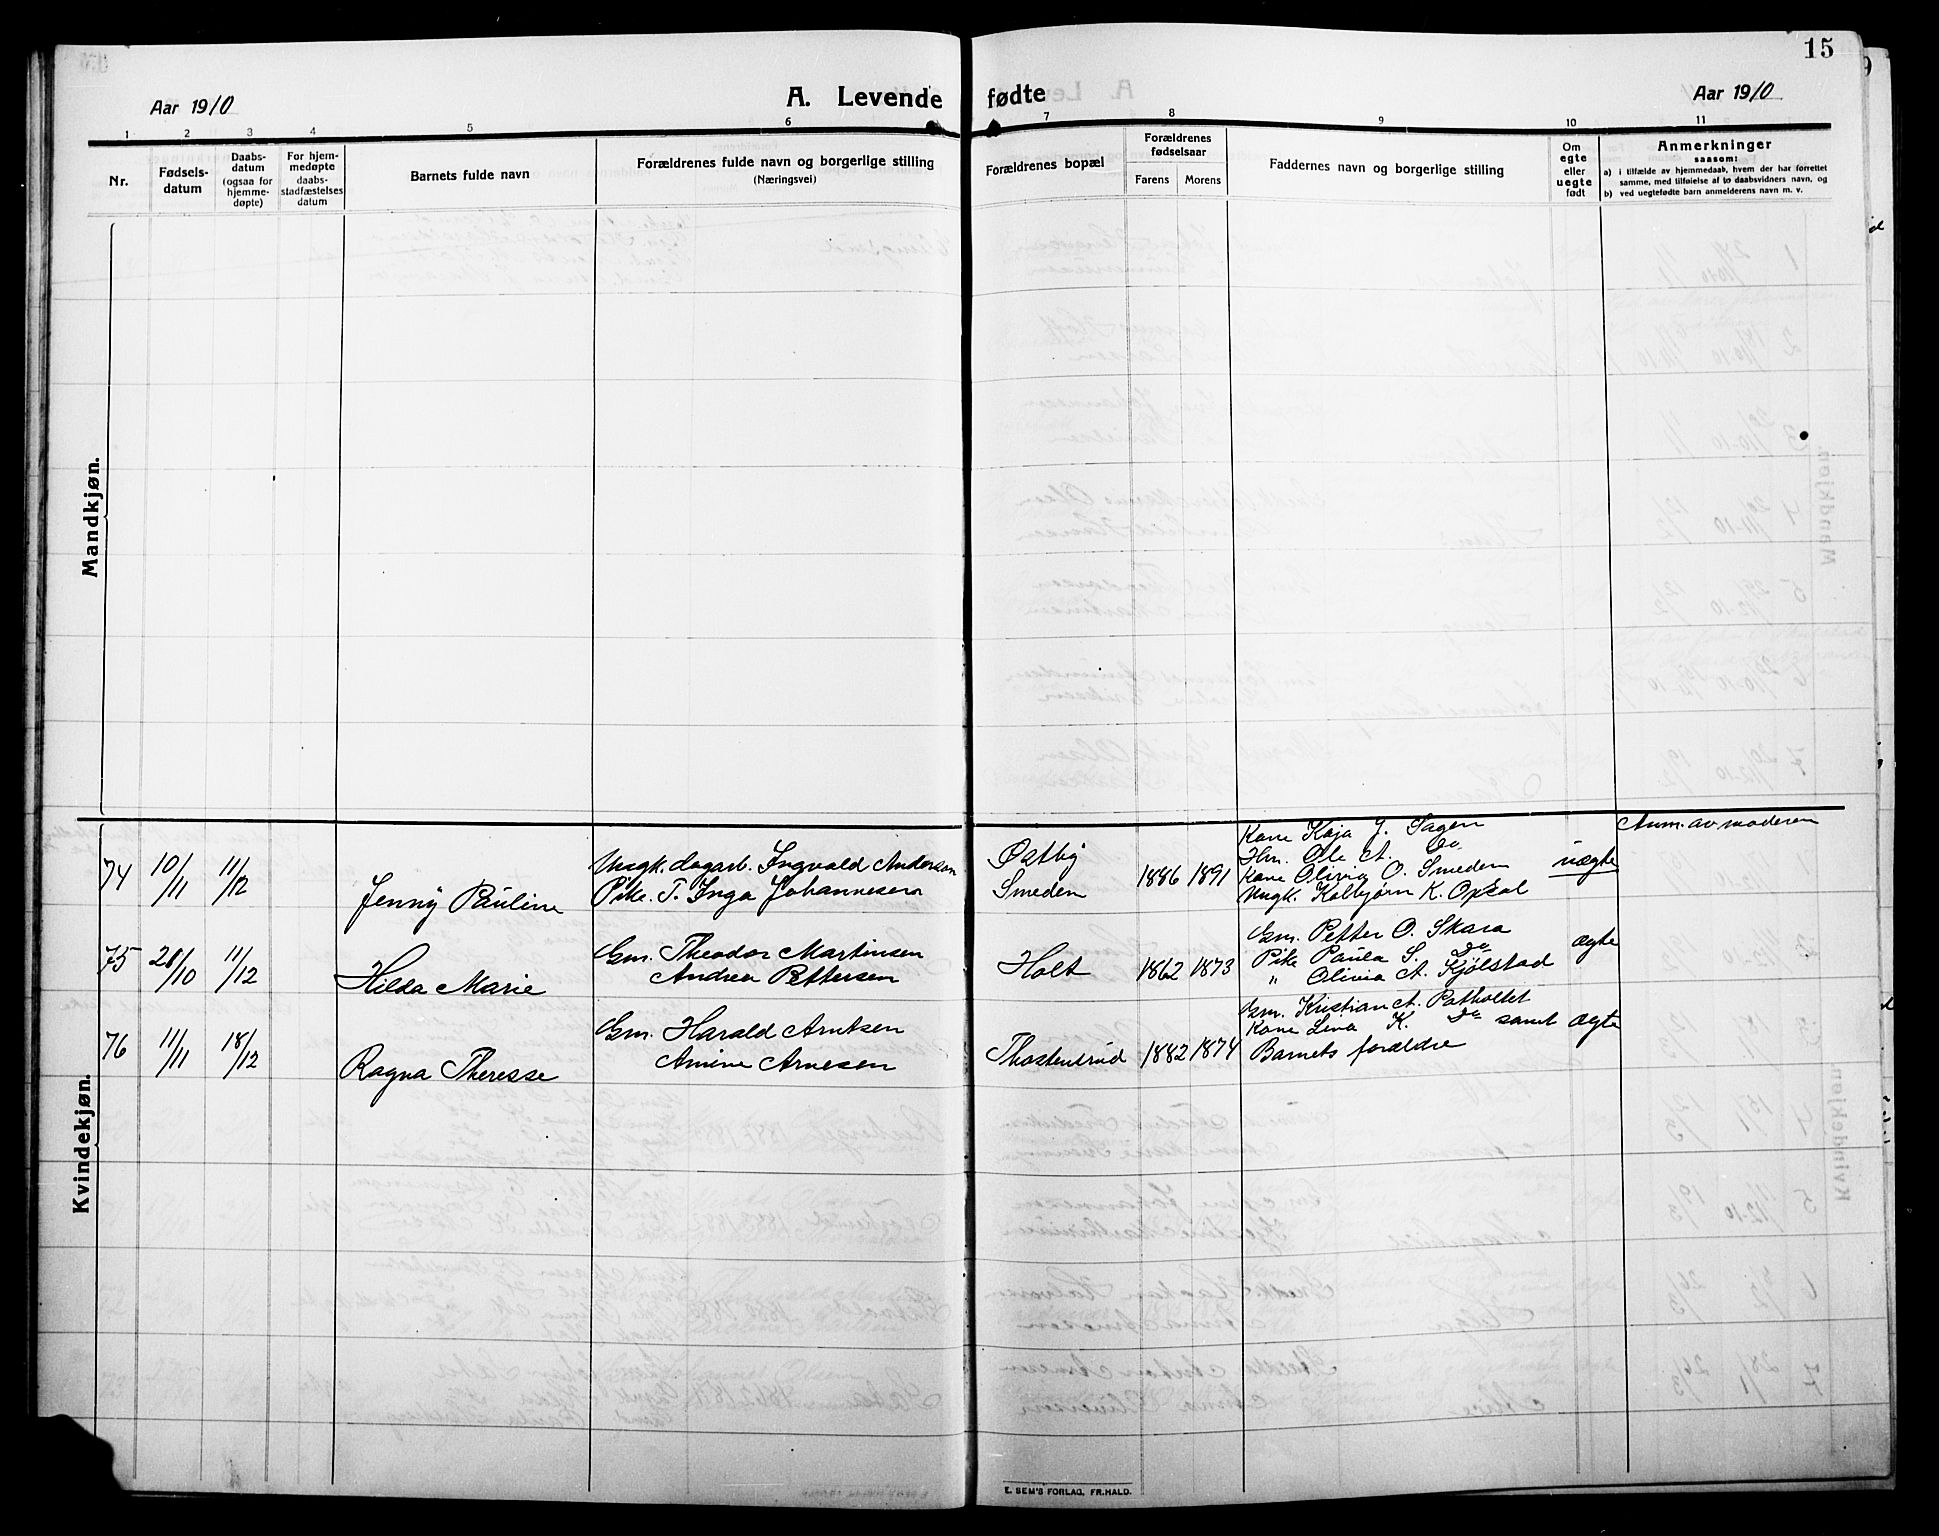 15
Aar 1910
A. Levende fødte
Aar 1910
1 2 3 4 5 6 7 8 9 10 11
Nr.
Fødsels-
datum
Daabs-
datum
(ogsaa for
hjemme-
døpte)
For hjem-
medøpte
daabs-
stadfæstelses
datum
Barnets fulde navn
Forældrenes fulde navn og borgerlige stilling
(Næringsvei)
Forældrenes bopæl
Forældrenes
fødselsaar
Farens Morens
Faddernes navn og borgerlige stilling
Om
egte
eller
uegte
født
Anmerkninger
saasom:
a) i tilfælde av hjemmedaab, hvem der har forrettet
samme, med tilføielse af to daabsvidners navn, og
b) ved uegtefødte barn anmelderens navn m. v.
Mandkjøn.
Kvindekjøn.
74 10/11 11/12 Jenny Pauline
Ungk. dagarb. Ingvald Anderson
Pike. T. Inga Johannesen
Østby
Smeden
1886 1891
Kone Kaja J. Sagen
Hm. Ole A. Do
Kone Olivia O. Smeden
Ungk. Kolbjørn K. Opsal
uægte
Anm. av moderen
75 28/10 11/12 Hilda Marie
Gm. Theodor Martinsen
Andrea Pettersen
Holt
1862 1873
Gm. Petter O. Skara
Pike Paula S. Do
" Olivia A. Kjølstad
ægte
76 11/11 18/12 Ragna Theresse
Gm. Harald Arntsen
Amine Arnesen
Thostensrud
1882 1874
Gm. Kristian A. Patholtet
Kone Lina K. Do samt
Barnets forældre
ægte
E. SEM'S FORLAG, FR.HALD.